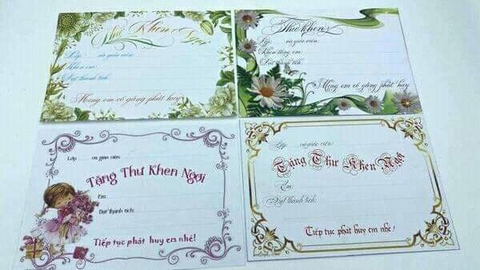 Thư Khen
Lớp: và giáo viên:
Khen em:
Đạt thành tích:
Mong em cố gắng phát huy
Thư khen
Lớp: và giáo viên:
Khen tặng em:
Đạt thành tích:
Mong em cố gắng phát huy
Lớp: và giáo viên:
Tặng Thư Khen Ngợi
Em:
Đạt thành tích:
Tiếp tục phát huy em nhé!
Lớp: và giáo viên:
Tặng Thư Khen Ngợi
Em:
Đạt thành tích:
Tiếp tục phát huy em nhé!